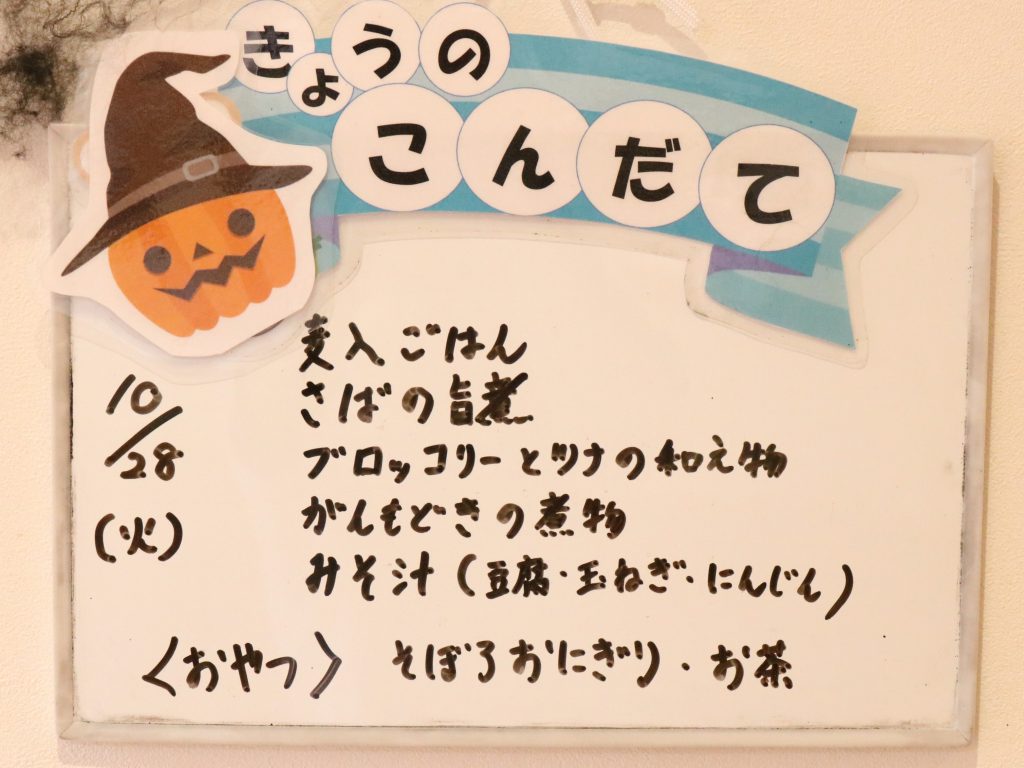 きょうの
こんだて
麦入ごはん
さばの旨煮
ブロッコリーとツナの和え物
がんもどきの煮物
みそ汁(豆腐・玉ねぎ・にんじん)
10/28
(火)
〈おやつ〉 そぼろおにぎり・お茶